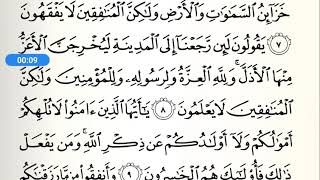 خَزَآئِنُ ٱلسَّمَٰوَٰتِ وَٱلۡأَرۡضِ وَلَٰكِنَّ ٱلۡمُنَٰفِقِينَ لَا يَفۡقَهُونَ
٧ يَقُولُونَ لَئِن رَّجَعۡنَآ إِلَى ٱلۡمَدِينَةِ لَيُخۡرِجَنَّ ٱلۡأَعَزُّ
00:09
مِنۡهَا ٱلۡأَذَلَّۚ وَلِلَّهِ ٱلۡعِزَّةُ وَلِرَسُولِهِۦ وَلِلۡمُؤۡمِنِينَ وَلَٰكِنَّ
ٱلۡمُنَٰفِقِينَ لَا يَعۡلَمُونَ ٨ يَٰٓأَيُّهَا ٱلَّذِينَ ءَامَنُواْ لَا تُلۡهِكُمۡ
أَمۡوَٰلُكُمۡ وَلَآ أَوۡلَٰدُكُمۡ عَن ذِكۡرِ ٱللَّهِۚ وَمَن يَفۡعَلۡ
ذَٰلِكَ فَأُوْلَٰٓئِكَ هُمُ ٱلۡخَٰسِرُونَ ٩ وَأَنفِقُواْ مِن مَّا رَزَقۡنَٰكُم